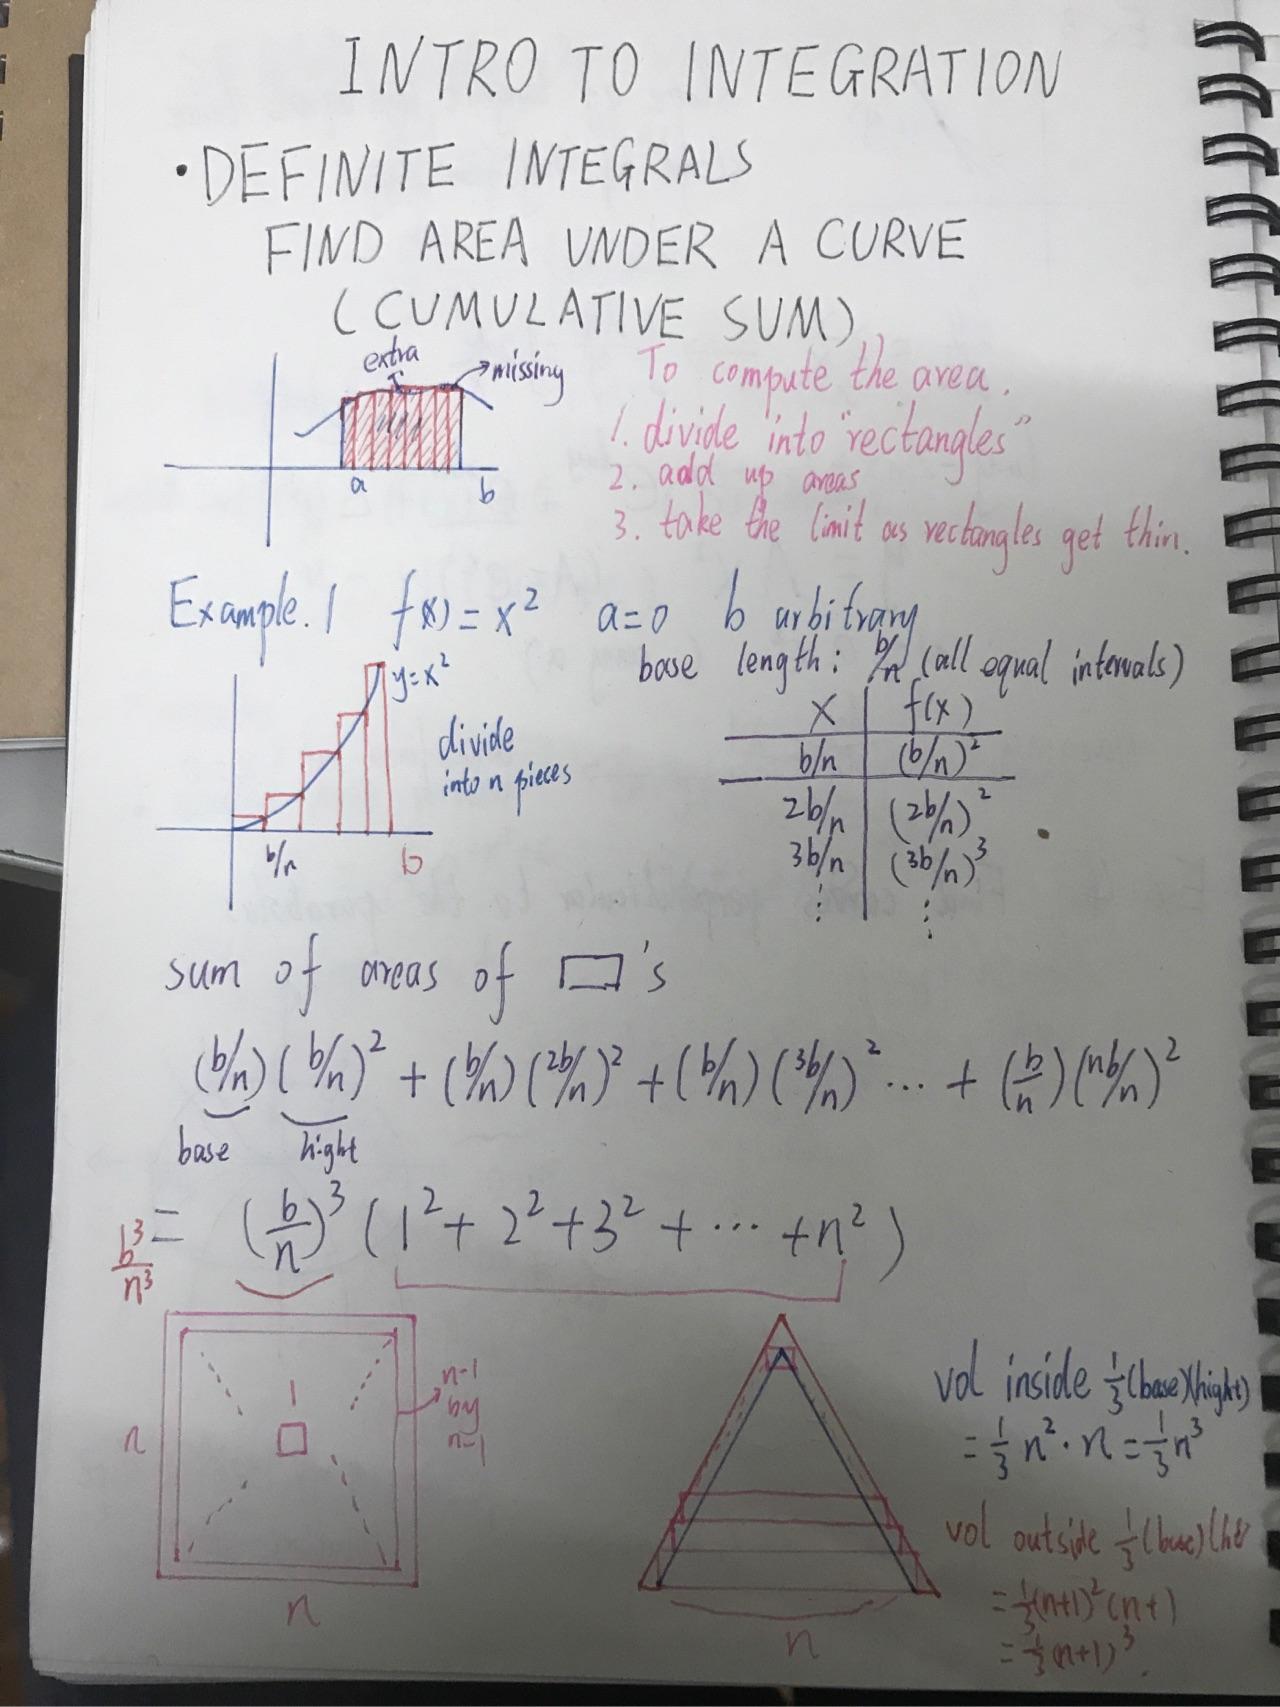 INTRO TO INTEGRATION
• DEFINITE INTEGRALS
FIND AREA UNDER A CURVE
(CUMULATIVE SUM)
extra
missing
a
b
To compute the area.
1. divide into "rectangles"
2. add up areas
3. take the limit as rectangles get thin.
Example. 1 f(x) = x² a=0 b arbitrary
base length: b/n (all equal intervals)
y=x²
divide
into n pieces
b/n
b
x f(x)
b/n (b/n)²
2b/n (2b/n)²
3b/n (3b/n)³
⋮ ⋮
sum of areas of ▭'s
(b/n)(b/n)² + (b/n)(2b/n)² + (b/n)(3b/n)² ... + (b/n)(nb/n)²
base hight
= (b/n)³ (1² + 2² + 3² + ... + n²)
b³/n³
1
n
n-1
by
n-1
n
n
vol inside 1/3(base)(hight)
= 1/3 n² · n = 1/3 n³
vol outside 1/3(base)(h
= 1/3(n+1)²(n+1)
= 1/3(n+1)³.